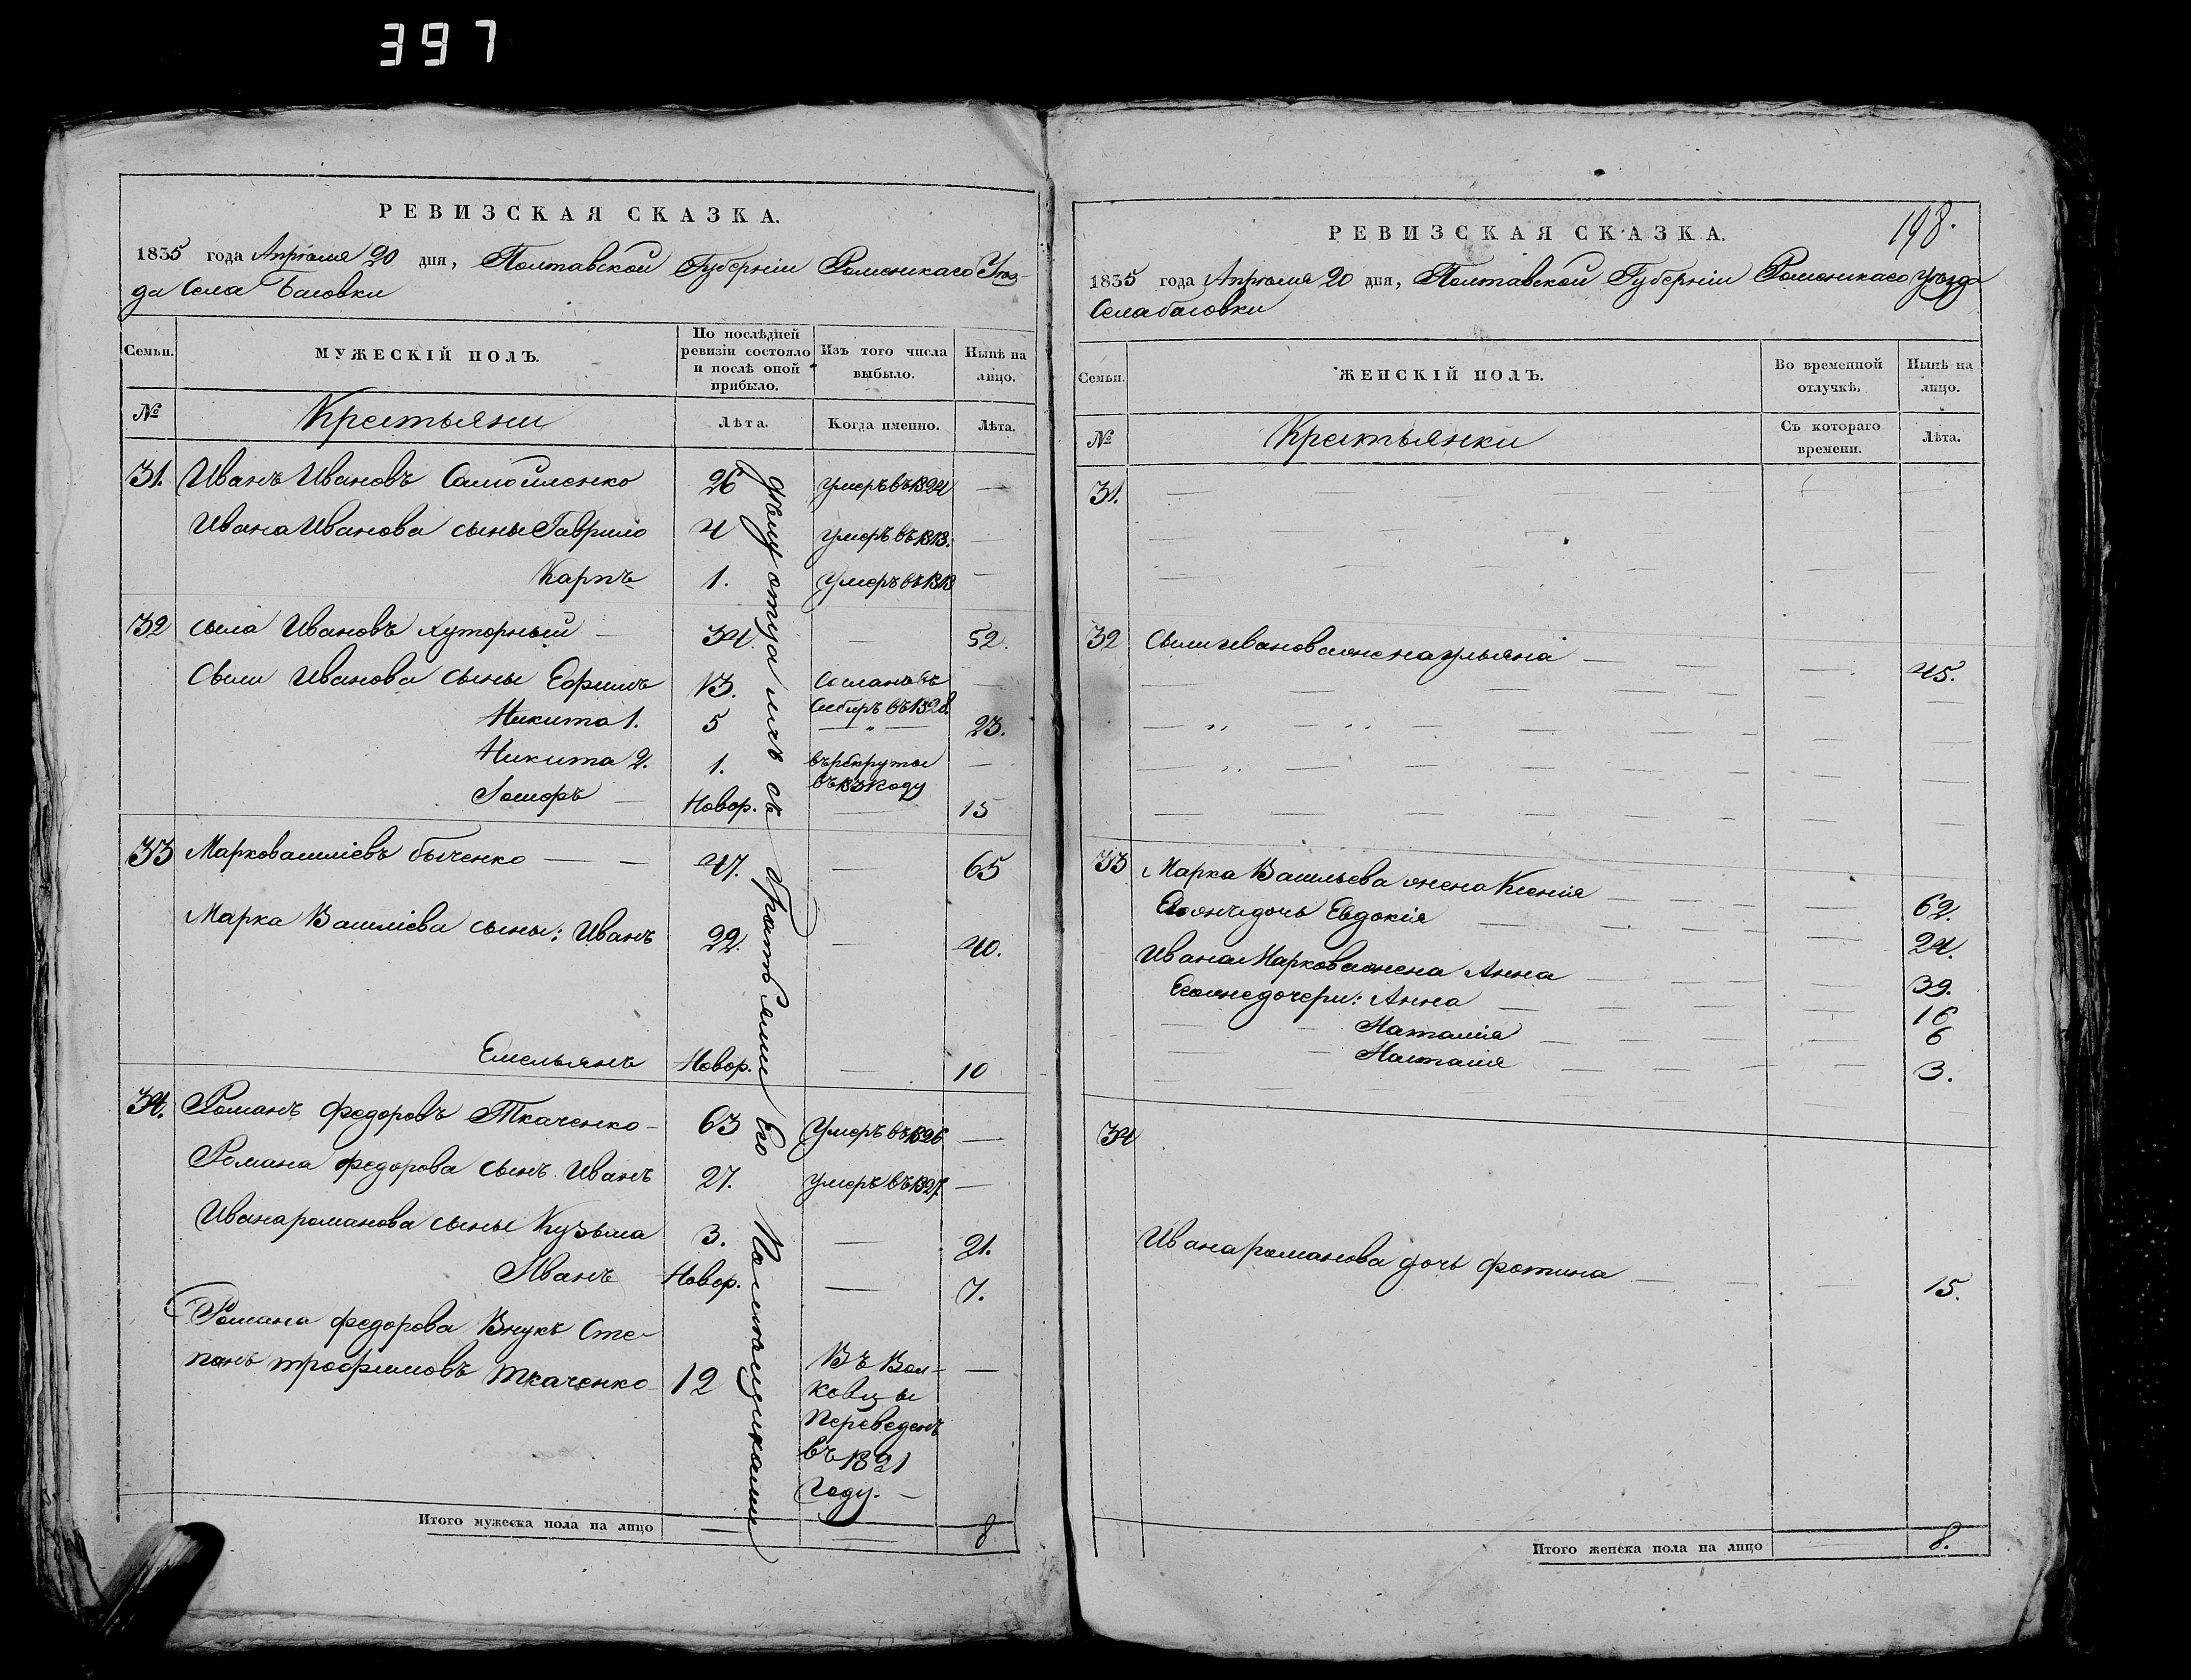 397
РЕВИЗСКАЯ СКАЗКА.
1835 года Апрѣля 20 дня, Полтавской Губерніи Роменскаго Уѣз-
да Села Басовки
Семьи.
МУЖЕСКІЙ ПОЛЪ.
По послѣдней ревизіи состояло и послѣ оной прибыло.
Изъ того числа выбыло.
Нынѣ на лицо.
№
Крестьяни
Лѣта.
Когда именно.
Лѣта.
31. Иванъ Ивановъ Самойленко 26 умеръ въ 1824 —
Ивана Иванова сыны Гаврило 4 умеръ въ 1813. —
Карпъ 1. Умеръ въ 1813 —
32 Сыла Ивановъ хуторный — 34 — 52.
Сылы Иванова сыны Ефимъ 13. Сосланъ въ —
Сибирь въ 1828.
Никита 1. 5 — " — 23.
Никита 2. 1. въ рекруты —
въ 1831 году
— Новор. — 15
33 Марко Василіевъ быченко — — 47. — 65
Марка Василіева сыны: Иванъ 22. — 40.
Емельянъ Новор. — 10
34. Романъ Федоровъ Ткаченко — 63 Умеръ въ 1826 —
Романа Федорова сынъ Иванъ 27. умеръ въ 1827. —
Ивана романова сыны Кузьма 3. — 21.
Иванъ Новор. — 7.
Романа Федорова Внукъ Сте-
панъ трофимовъ ткаченко 12 Въ Вол- —
ковцы
переведенъ
въ 1821
Году. —
отца ихъ съ братьями Его
Итого мужеска пола на лицо — — 8
198.
РЕВИЗСКАЯ СКАЗКА.
1835 года Апрѣля 20 дня, Полтавской Губерніи Роменскаго уѣзда
Села басовки
Семьи.
ЖЕНСКІЙ ПОЛЪ.
Во временной отлучкѣ.
Нынѣ на лицо.
№
Крестьянки
Съ котораго времени.
Лѣта.
31.
32 Сылы иванова жена ульяна — — 45.
33 Марка Васильева жена Ксенія — — 62.
Евдокія — — 24.
Ивана Маркова жена Анна — — 39.
Его же дочери: Анна — — 16
Наталия — — 6
Настасія — — 3.
34
Ивана романова дочь фотина — — 15.
Итого женска пола на лицо — 8.